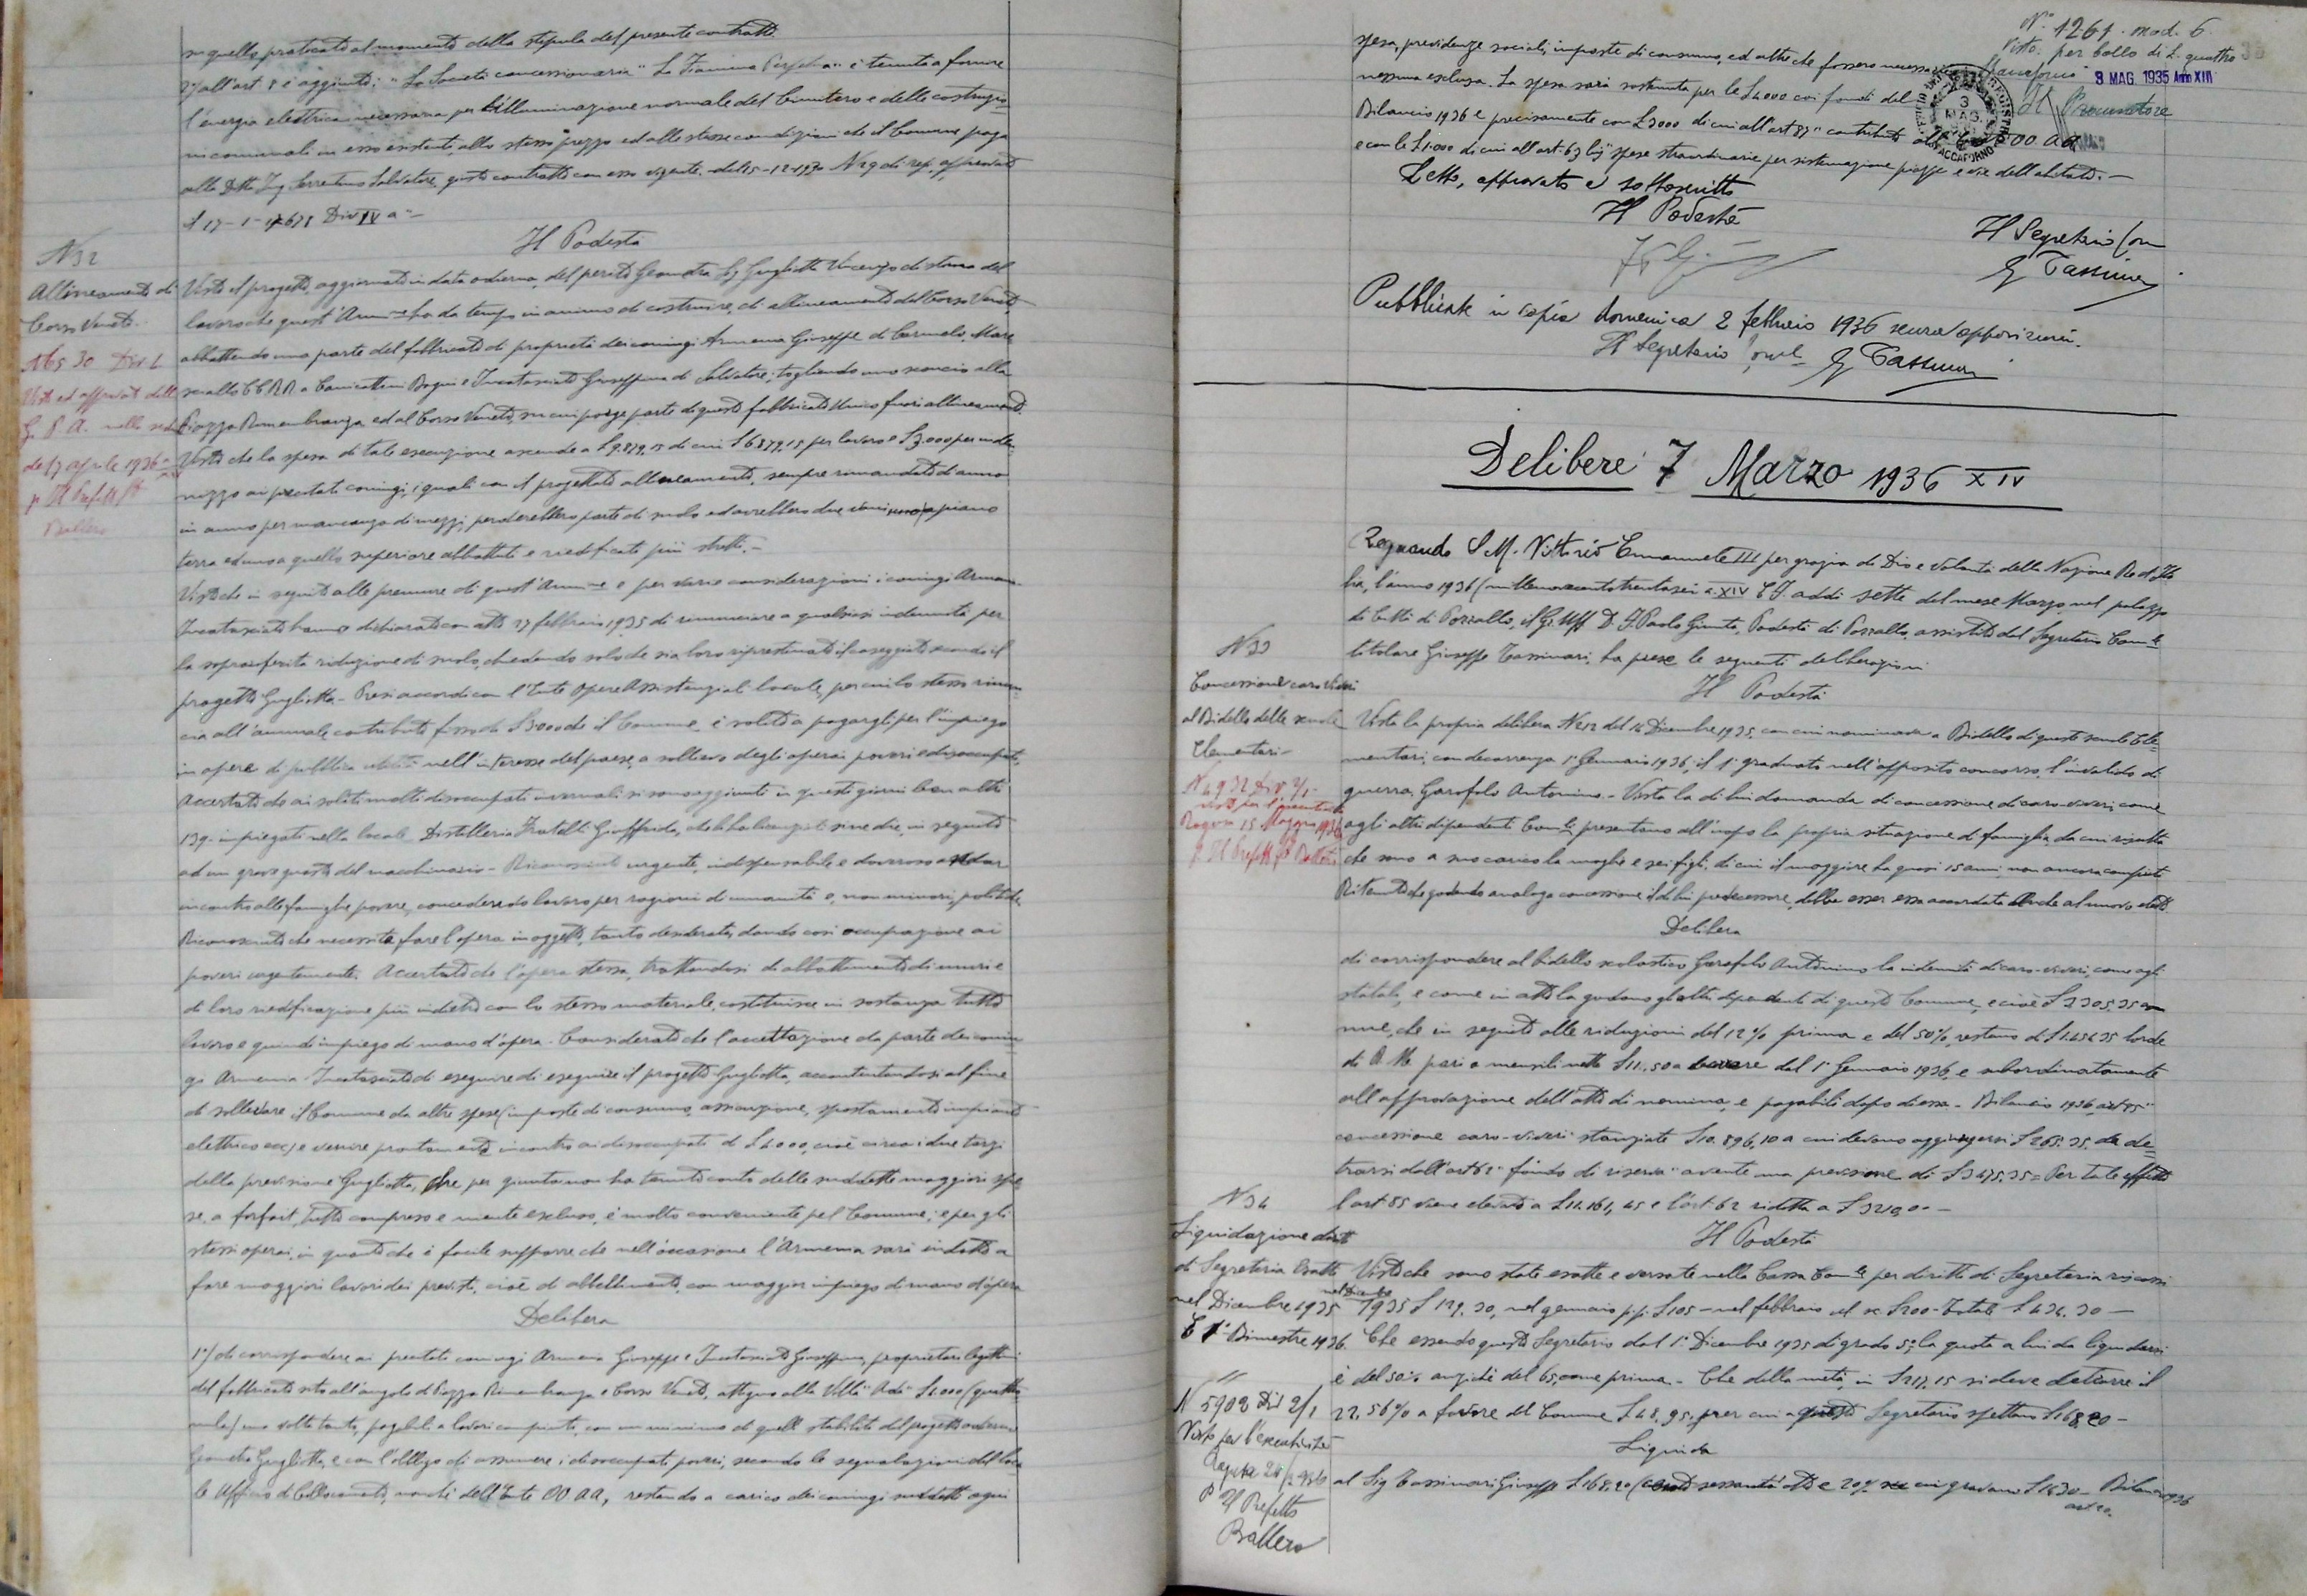 in quello praticato al momento della stipula del presente contratto.
2) all'art 8 è aggiunto: "La Società concessionaria "La Fiamma Perpetua" è tenuta a fornire
l'energia elettrica necessaria per l'illuminazione normale del Cimitero e delle costruzio=
ni comunali in esso esistenti, allo stesso prezzo ed alle stesse condizioni che il Comune paga
alla Ditta Ing Sorrentino Salvatore, giusto contratto con essa vigente del 15-12-1930 N 29 di rep. approvato
Il Podestà
N 32
Allineamento di
Corso Veneto.
Visto ed approvato dalla
G. P. A. nella seduta
del 7 aprile 1936
p. Il Prefetto
Ballero
Visto il progetto, aggiornato in data odierna, del perito Geometra Sig Gugliotta Vincenzo di stima del
lavoro che quest'Amm.ne ha da tempo in animo di costruire, di allineamento del Corso Veneto,
abbattendo una parte del fabbricato di proprietà dei coniugi Armenia Giuseppe di Carmelo, Mare
sciallo CC RR a Canicattini Bagni e Incatasciato Giuseppina di Salvatore, togliendo uno sconcio alla
Piazza Rimembranza ed al Corso Veneto, su cui porge parte di questo fabbricato unico fuori allineamento.
Visto che la spesa di tale esecuzione ascende a £ 9.879,15 di cui £ 6879,15 per lavoro e £ 3.000 per inden
nizzo ai precitati coniugi, i quali con il progettato allineamento, sempre rimandato d'anno
in anno per mancanza di mezzi, perderebbero parte di suolo ed avrebbero due vani a piano
terra ed uno a quello superiore abbattuti e riedificati più stretti.-
Visto che in seguito alle premure di quest'Amm.ne e per varie considerazioni i coniugi Armenia
Incatasciato hanno dichiarato con atto 27 febbraio 1935 di rinunciare a qualsiasi indennità per
la sopra riferita riduzione di suolo, chiedendo solo che sia loro ripristinato il caseggiato secondo il
progetto Gugliotta - Presi accordi con l'Ente Opere Assistenziali locale, per cui lo stesso rinun
cia all'annuale contributo fisso di £ 3000 che il Comune è solito a pagargli per l'impiego
in opere di pubblica utilità nell'interesse del paese, a sollievo degli operai poveri e disoccupati,
Accertato che ai soliti molti disoccupati invernali si sono aggiunti in questi giorni ben altri
139 impiegati nella locale Distilleria Fratelli Giuffrida, che li ha licenziati sine die, in seguito
ad un grave guasto del macchinario - Riconosciuto urgente, indispensabile e doveroso andar
incontro alle famiglie povere, concedendo lavoro per ragioni di umanità e, non minori, politiche,
Riconosciuto che necessita fare l'opera in oggetto, tanto desiderata, dando così occupazione ai
poveri urgentemente. Accertato che l'opera stessa, trattandosi di abbattimento di muri e
di loro riedificazione più indietro con lo stesso materiale, costituisce in sostanza tutto
lavoro e quindi impiego di mano d'opera. Considerato che l'accettazione da parte dei coniu
gi Armenia Incatasciato di eseguire di eseguire il progetto Gugliotta, accontentandosi al fine
di sollevare il Comune da altre spese (imposte di consumo, assicurazione, spostamento impianto
elettrico ecc) e venire prontamente incontro ai disoccupati di £ 4000, cioè circa i due terzi
della previsione Gugliotta, che per giunta non ha tenuto conto delle suddette maggiori spe
se, a forfait, tutto compreso e niente escluso, è molto conveniente pel Comune, e per gli
stessi operai, in quanto che è facile supporre che nell'occasione l'Armenia sarà indotto a
fare maggiori lavori dei previsti, cioè di abbellimento, con maggior impiego di mano d'opera
Delibera
1°/ di corrispondere ai precitati coniugi Armenia Giuseppe e Incatasciato Giuseppina, proprietari legittimi
del fabbricato sito all'angolo di Piazza Rimembranza e Corso Veneto, attiguo alla Villa "Ada" £ 4000 (quattro
mila) una volta tanto, pagabili a lavori compiuti, con un minimo di quelli stabiliti dal progetto odierno
Geometra Gugliotta, e con l'obbligo di assumere i disoccupati poveri, secondo le segnalazioni del loca
le Ufficio di Collocamento, nonchè dell'Ente OO AA, restando a carico dei coniugi suddetti ogni
N° 1261. mod. 6.
Visto: per bollo di L. quattro
3 MAG. 1935 Anno XIII
Il Procuratore
3
MAG.
spesa, previdenze sociali, imposte di consumo, ed altre che fossero necessarie
nessuna esclusa. La spesa sarà sostenuta per le £ 4000 coi fondi del
Bilancio 1936 e precisamente con £ 3000 di cui all'art 87 "contributo OO. AA.
e con le £ 1.000 di cui all'art. 63 "spese straordinarie per sistemazione piazze e vie dell'abitato.-
Letto, approvato e sottoscritto
Il Podestà
Il Segretario Com
G Tassinari
Pubblicate in copia domenica 2 febbraio 1936 senza opposizioni.
Il Segretario Com.le G Tassinari
Delibere 7 Marzo 1936 XIV
Regnando S. M. Vittorio Emanuele III per grazia di Dio e volontà della Nazione Re d'Ita
lia, l'anno 1936 (millenovecentotrentasei) a. XIV E.F. addì sette del mese Marzo nel palazzo
di Città di Pozzallo, il Gr. Uff D. Paolo Giunta, Podestà di Pozzallo, assistito dal Segretario Com.le
titolare Giuseppe Tassinari, ha prese le seguenti deliberazioni
Il Podestà
N 33
Concessione caro viveri
al Bidello delle scuole
Elementari-
N 4932 Div 2/1
Visto per l'esecutività
Ragusa 15 Maggio 1936
p. Il Prefetto Ballero
Vista la propria delibera N 212 del 16 Dicembre 1935, con cui nominava a Bidello di queste scuole Ele=
mentari, con decorrenza 1° Gennaio 1936, il 1° graduato nell'apposito concorso, l'invalido di
guerra, Garofolo Antonino. - Vista la di lui domanda di concessione di caro-viveri, come
agli altri dipendenti Com.li presentano all'uopo la propria situazione di famiglia, da cui risulta
che sono a suo carico la moglie e sei figli, di cui il maggiore ha quasi 15 anni non ancora compiuti
Ritenuto che godendo analoga concessione il di lui predecessore, debba esser essa accordata anche al nuovo eletto
Delibera
di corrispondere al bidello scolastico Garofolo Antonino la indennità di caro-viveri, come agli
statali, e come in atto la godono gli altri dipendenti di questo Comune, e cioè £ 2305,35 an
nue, che in seguito alle riduzioni del 12% prima e del 50%, restano di lorde
di R.M. pari a mensili nette a decorrere dal 1° Gennaio 1936, e subordinatamente
all'approvazione dell'atto di nomina, e pagabili dopo di essa. - Bilancio 1936 art 85 "
concessione caro-viveri" stanziate £ 10.896,10 a cui devono aggiungersi £ 265,35 da de=
trarsi dall'art 62 "fondo di riserva" avente una previsione di £ 3475,35 = Per tale effetto
l'art 85 viene elevato a £ 11.161,45 e l'art. 62 ridotto a £ 3210,00 -
Il Podestà
N 34
Liquidazione diritti
di Segreteria Esatti
nel Dicembre 1935
E 1° Bimestre 1936.
N 5902 Div 2/1
Visto per l'esecutività
p Il Prefetto
Ballero
Visto che sono state esatte e versate nella Cassa Com.le per diritti di Segreteria riscossi
nel Dicembre
1935 £ 129.30, nel gennaio p.p. £ 105 - nel febbraio u.s. £ 200 - Totale £ 434.30 -
Che essendo questo Segretario dal 1° Dicembre 1935 di grado 5°, la quota a lui da liquidarsi
è del 50% anzichè del 65, come prima. - Che della metà, in £ 217,15 si deve detrarre il
22,56% a favore del Comune £ 48,95, per cui a questo Segretario spettano £ 168,20 -
Liquida
al Sig Tassinari Giuseppe £ 168,20 (cento sessantotto e 20% su cui gravano Bilancio 1936
art 20.